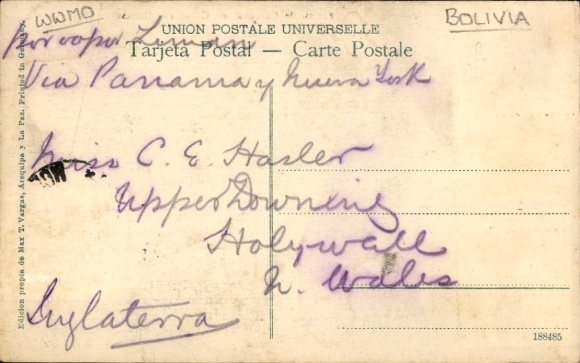 WWMO
BOLIVIA
UNION POSTALE UNIVERSELLE
por vapor Liman
Tarjeta Postal — Carte Postale
Via Panama y Nueva York
Miss C. E. Hasler
Upper Downing
Holywell
N. Wales
Inglaterra
Edición propia de Max T. Vargas, Arequipa y La Paz, Printed in Germany.
188485